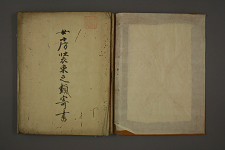 女房装束之類寄書